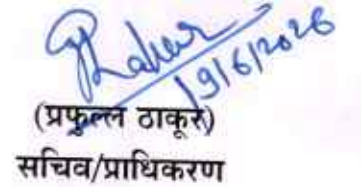 19/6/2026
(प्रफुल्ल ठाकुर)
सचिव/प्राधिकरण